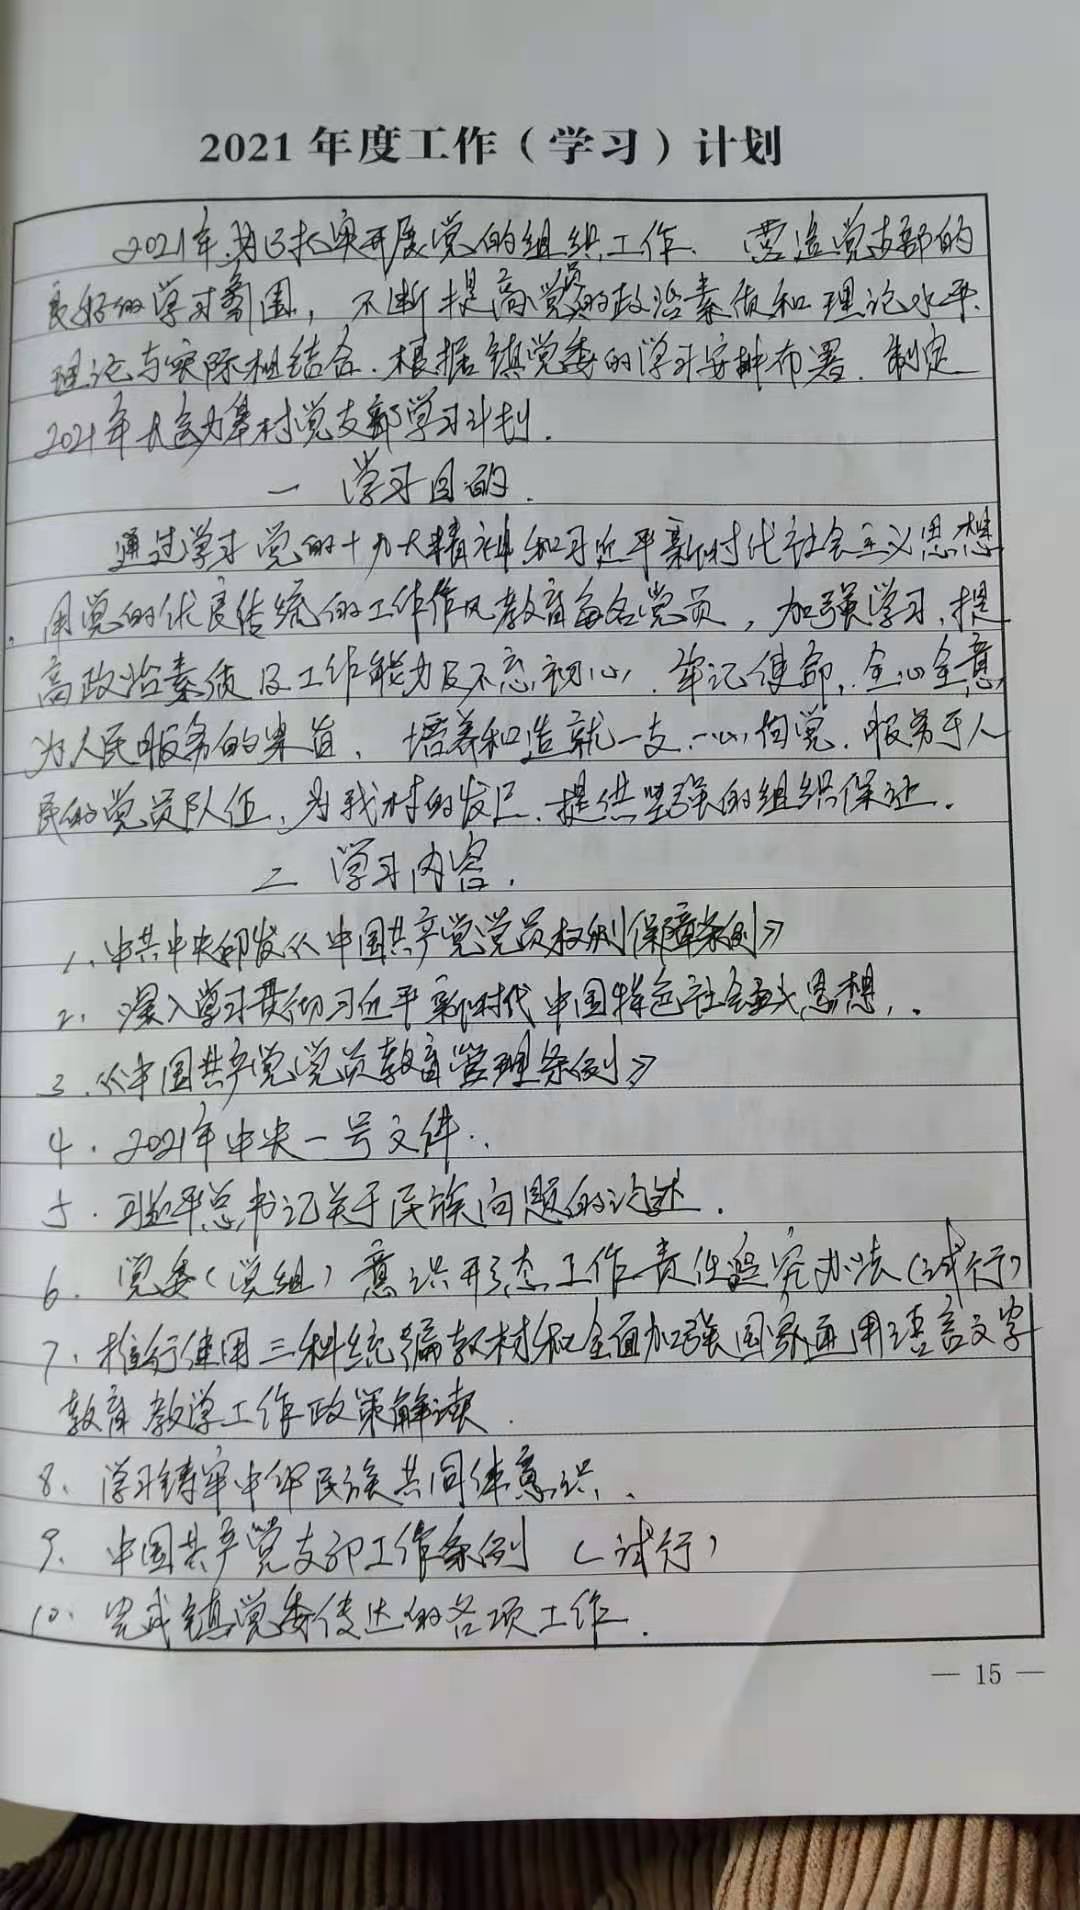 2021年度工作（学习）计划
2021年,为了扎实开展党的组织工作. 营造党支部的
良好的学习氛围, 不断提高党员的政治素质和理论水平.
理论与实际相结合.根据镇党委的学习安排布署.制定
2021年 村党支部学习计划.
一 学习目的.
通过学习党的十九大精神和习近平新时代社会主义思想
用党的优良传统的工作作风教育每名党员,加强学习,提
高政治素质及工作能力及不忘初心,牢记使命,全心全意
为人民服务的宗旨,培养和造就一支一心向党.服务于人
民的党员队伍,为我村的发展.提供坚强的组织保证.
二 学习内容.
1.中共中央印发《中国共产党党员权利保障条例》
2.深入学习贯彻习近平新时代中国特色社会主义思想,.
3.《中国共产党党员教育管理条例》
4.2021年中央一号文件..
5.习近平总书记关于民族问题的论述.
6.党委(党组)意识形态工作责任追究办法(试行)
7.推行使用三科统编教材和全面加强国家通用语言文字
教育教学工作政策解读.
8、学习铸牢中华民族共同体意识、.
9、中国共产党支部工作条例 (试行)
10、完成镇党委传达的各项工作.
— 15 —